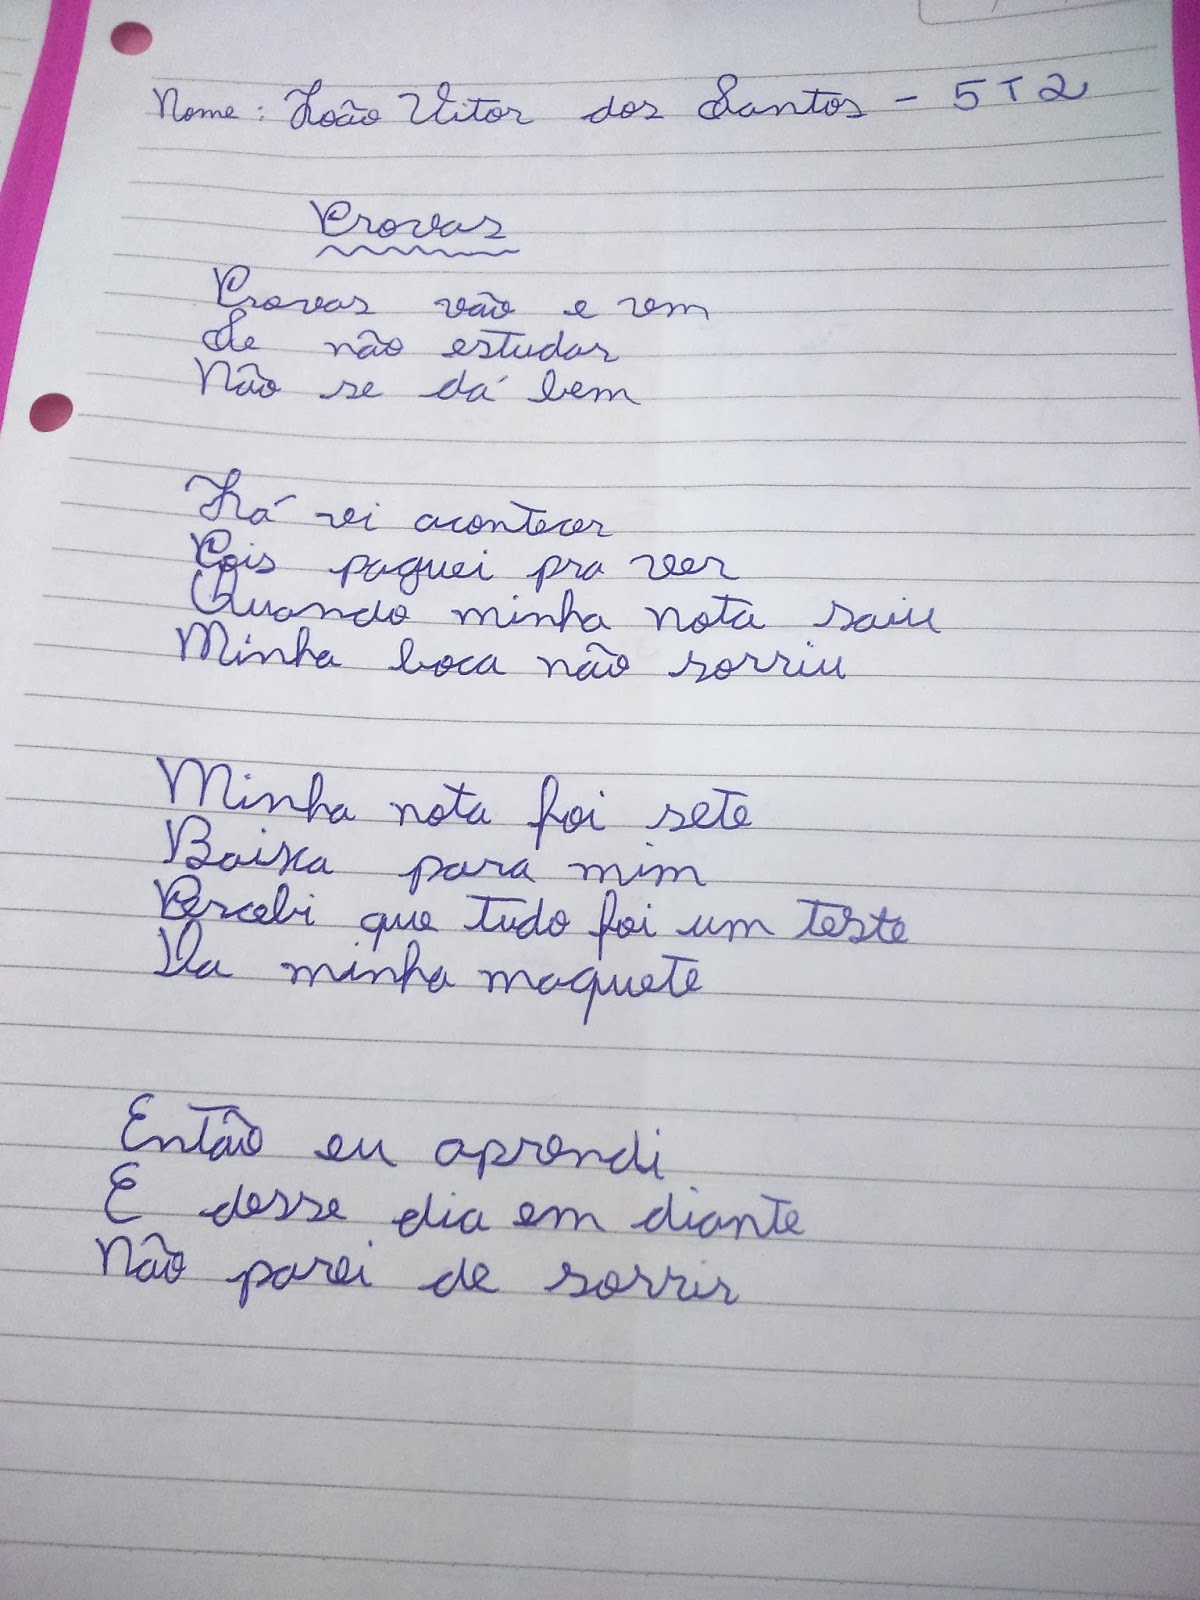 Nome: João Vitor dos Santos - 5T2
Provas
Provas vão e vem
Se não estudar
Não se dá bem
Já vi acontecer
Pois paguei pra ver
Quando minha nota saiu
Minha boca não sorriu
Minha nota foi sete
Baixa para mim
Percebi que tudo foi um teste
Da minha maquete
Então eu aprendi
E desse dia em diante
Não parei de sorrir